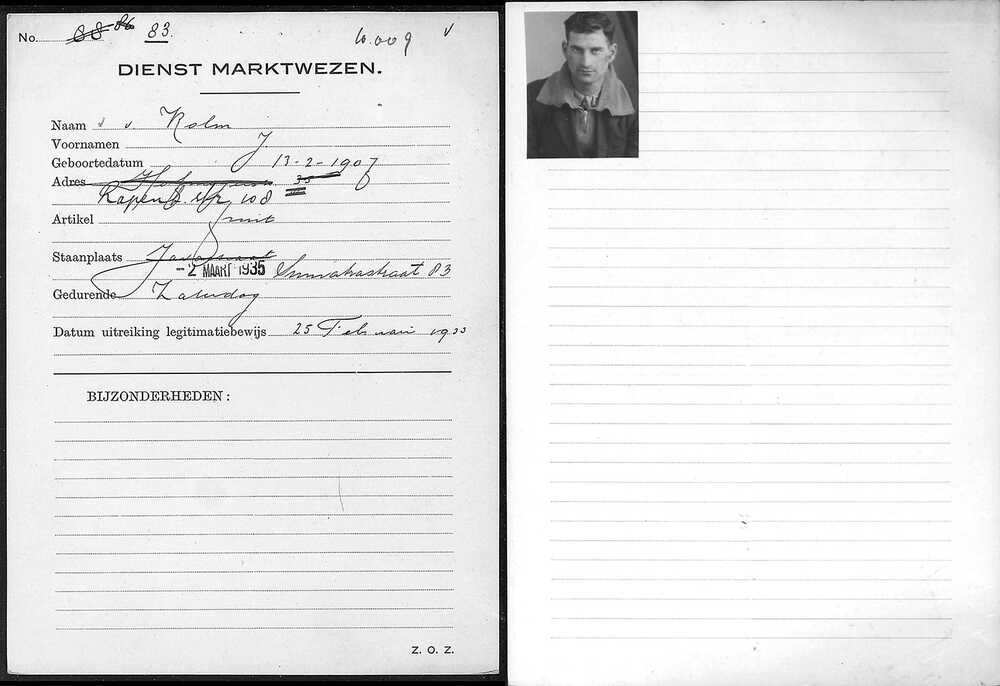 No. 88 86 83. 10.009 v
DIENST MARKTWEZEN.
Naam v. Kolm
Voornamen J.
Geboortedatum 13-2-1907
Adres 35
Rapenb. str 108
Artikel Fruit
Staanplaats Javastraat
-2 MAART 1935 Sumatrastraat 83
Gedurende Zaterdag
Datum uitreiking legitimatiebewijs 25 Februari 1933
BIJZONDERHEDEN:
Z. O. Z.